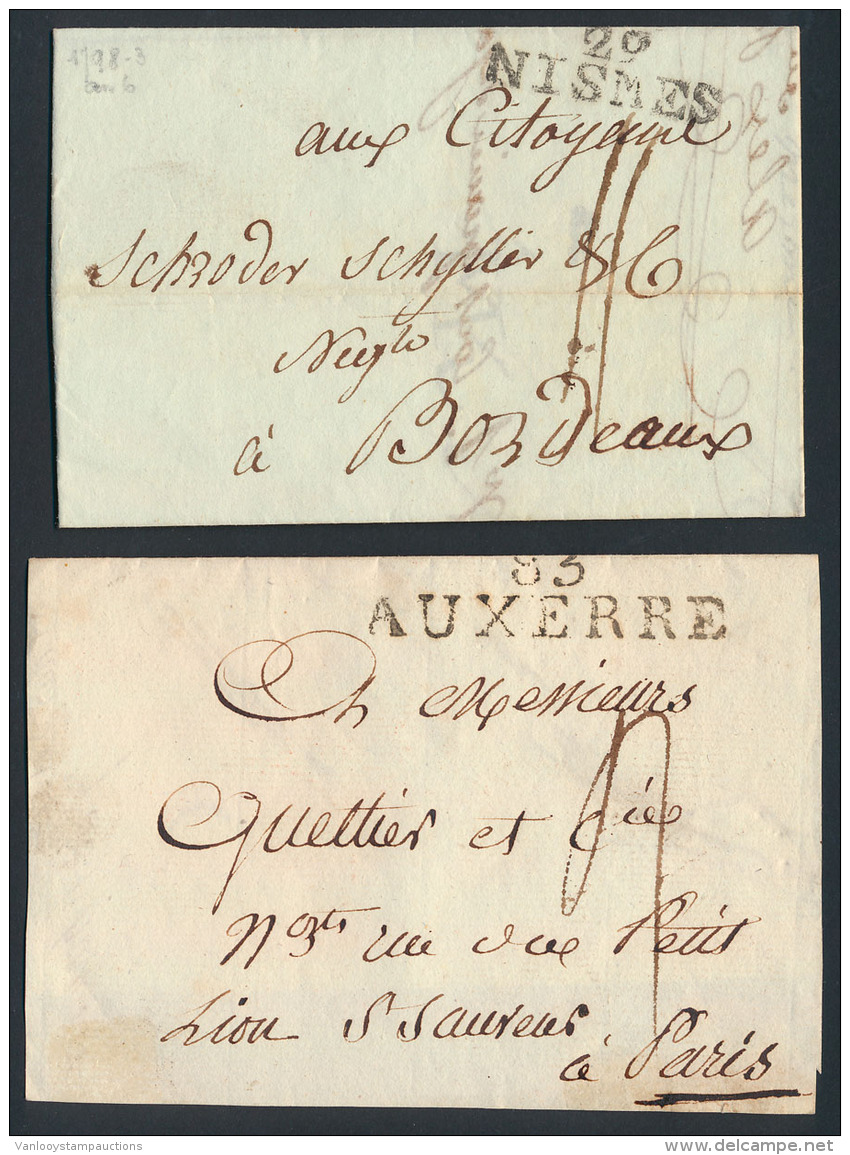 1798-3
an 6
29
NISMES
aux Citoyens
Schroder Schyller & C
Neg.ts
à Bordeaux
83
AUXERRE
A Messieurs
Quettier et Cie
N.gts rue du Petit
Lion St Sauveur
à Paris
Vanlooystampauctions
delcampe.net